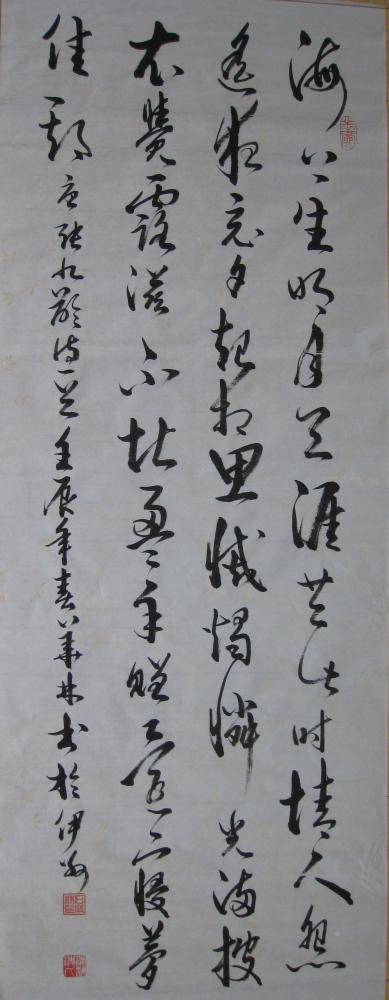 海上生明月天涯共此时情人怨
遥夜竟夕起相思灭烛怜光满披
衣觉露滋不堪盈手赠还寝梦
佳期唐张九龄诗一首壬辰年春八华林书於伊